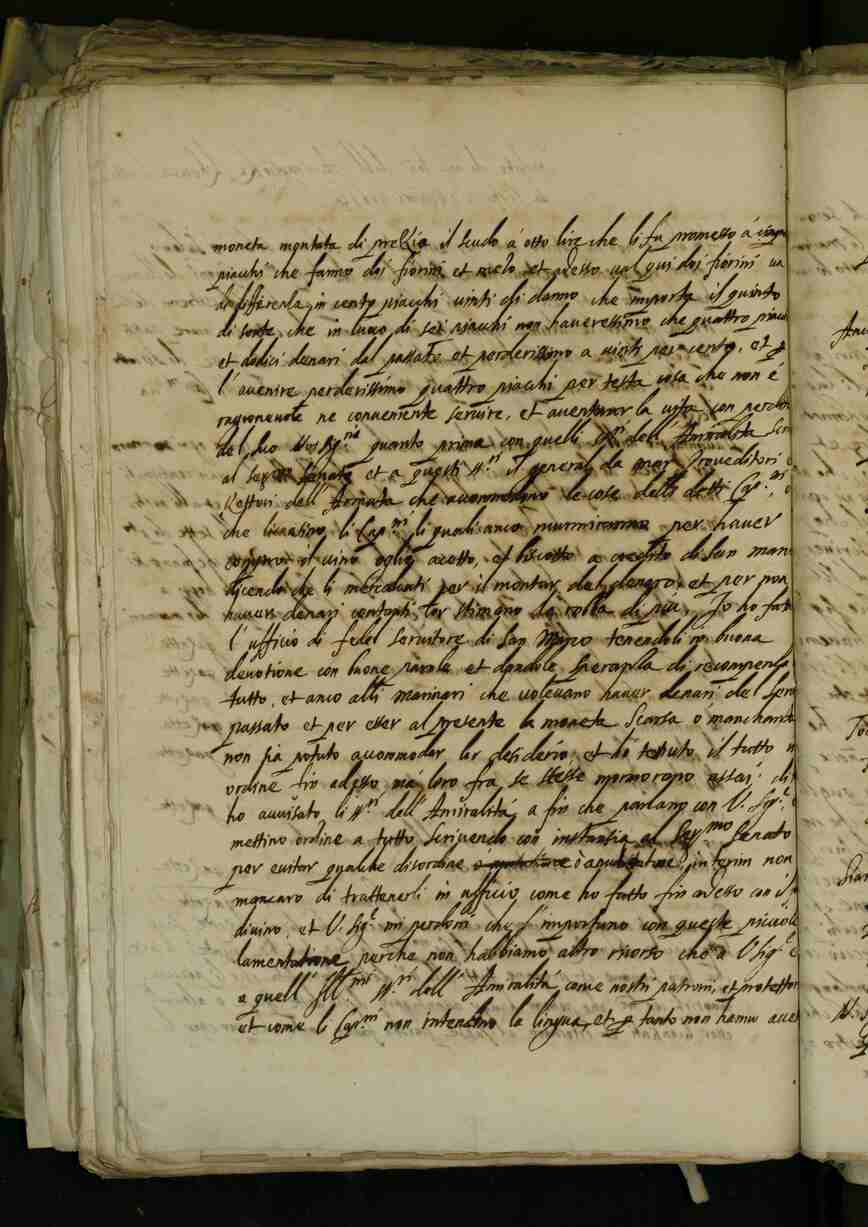 moneta montata di prezzio il scudo a otto lire che li fu promesso á cinque
piachi che fanno doi fiorini et melo et adesso val qui doi fiorini
differenza in cento piachi vinti di danno che importa il quinto
di sorte che in luoco di sei piachi non haveressimo che quattro piachi
et dodici denari del passato et perderissimo a vinti per cento, et p
l'avenire perderissimo quattro piachi per testa cosa che non é
ragionevole ne conveniente servire, et aventurar la vita con perder
del suo quanto prima con quelli SS.ri dell'Amiralitá
al Ser.mo Senato et a questi SS.ri il general da mar Proveditori
Rettori dell'Armata che accommodino le cose delli detti Cap.ni,
che li Cap.ni li quali anco murmurano per haver
comprar il vino oglio aceto, et biscotto a credito di San Marco
dicendo che li mercadanti per il montar del denaro, et per non
haver denari contanti lor stimano la robba di piú, Io ho fatto
l'ufficio di fedel servitore di San Marco tenendoli in buona
devotione con buone parole et dandole speranza di recompensa
tutto, et anco alli marinari che volevano haver denari del
passato et per esser al presente la moneta scarsa ó manchante
non há potuto accommodar lor desiderio, et hó tenuto il tutto in
ordine fin adesso, má loro fra se stesse mormorano assai di
ho avvisato li SS.ri dell'Amiralitá, a fin che parlano con V. Sig.ria
mettino ordine a tutto, scrivendo con instantia al Ser.mo Senato
per evitar qualche disordine interim non
mancaro di trattenerli in ufficio come ho fatto fin adesso con il
divino, et V. Sig.ria mi perdoni che l'importuno con queste piccole
lamentatione perche non habbiamo altro ricorso che a V. Sig.ria
a quell' Ill.mi SS.ri dell'Amiralitá come nostri patroni, et protettori
et come li Cap.ni non intendino la lingua, et p tanto non hanno